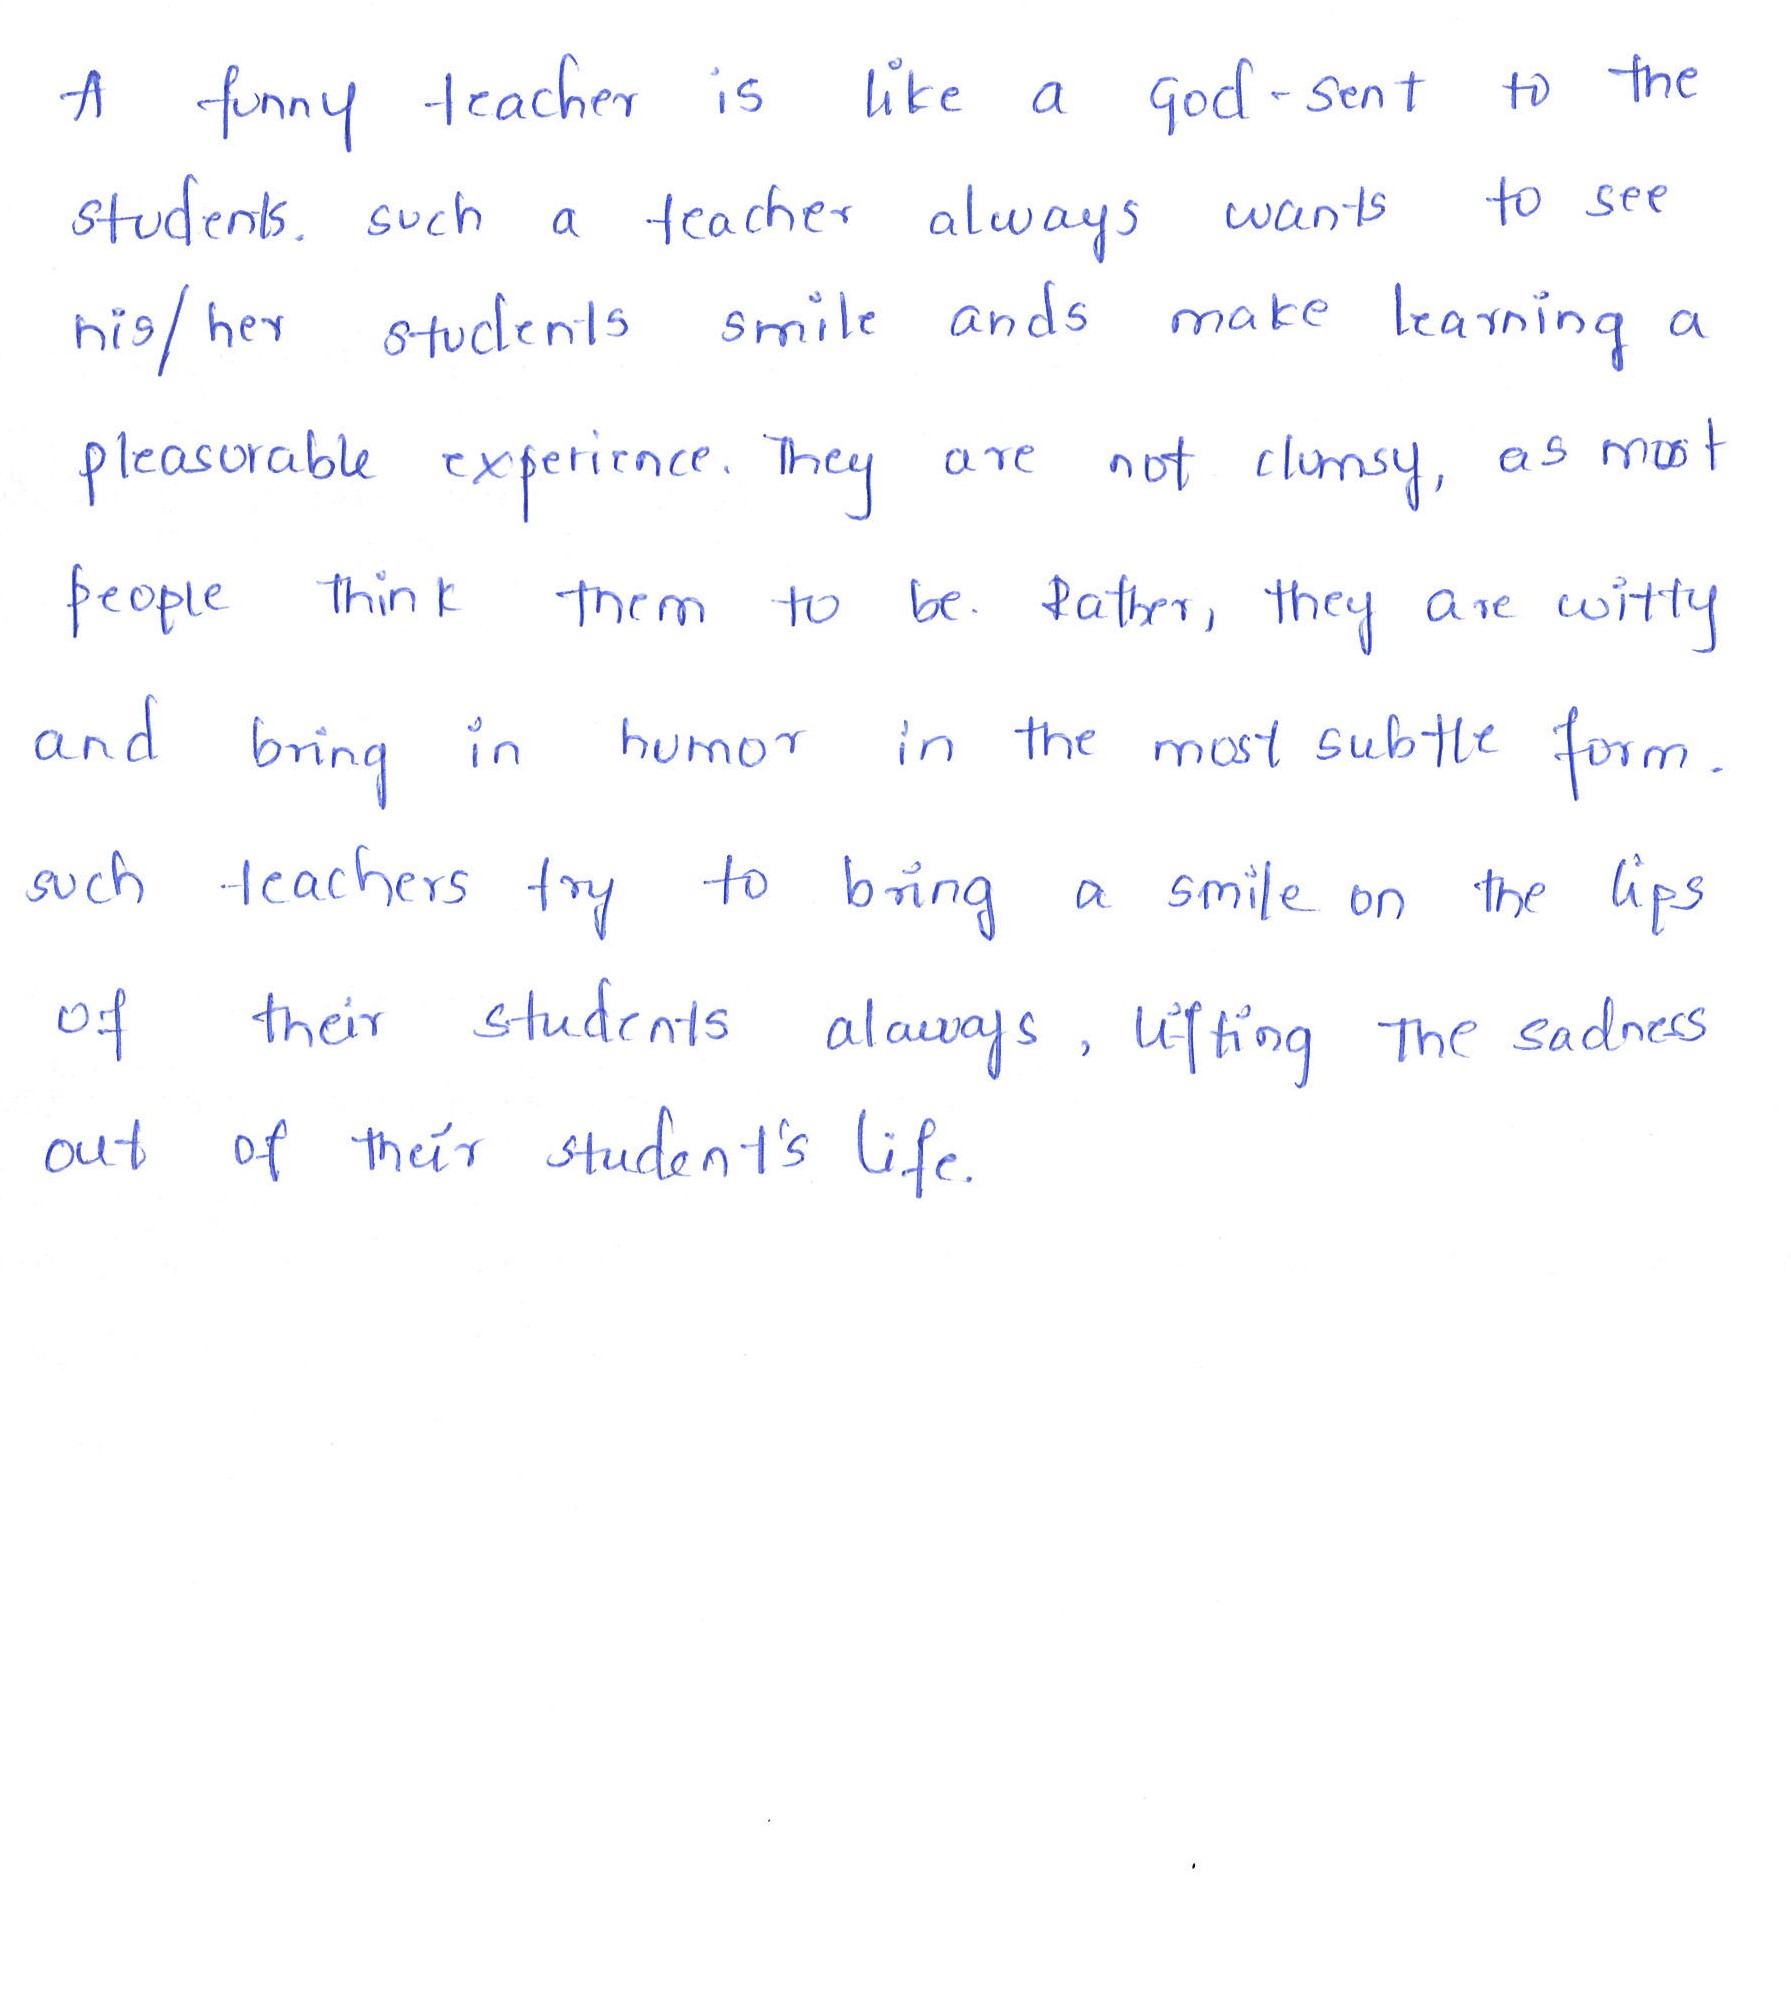 A funny teacher is like a God-sent to the
students. such a teacher always wants to see
his/her students smile ands make learning a
pleasurable experience. They are not clumsy, as most
people think them to be. Rather, they are witty
and bring in humor in the most subtle form.
such teachers try to bring a smile on the lips
of their students alaways, lifting The sadness
out of their student's life.